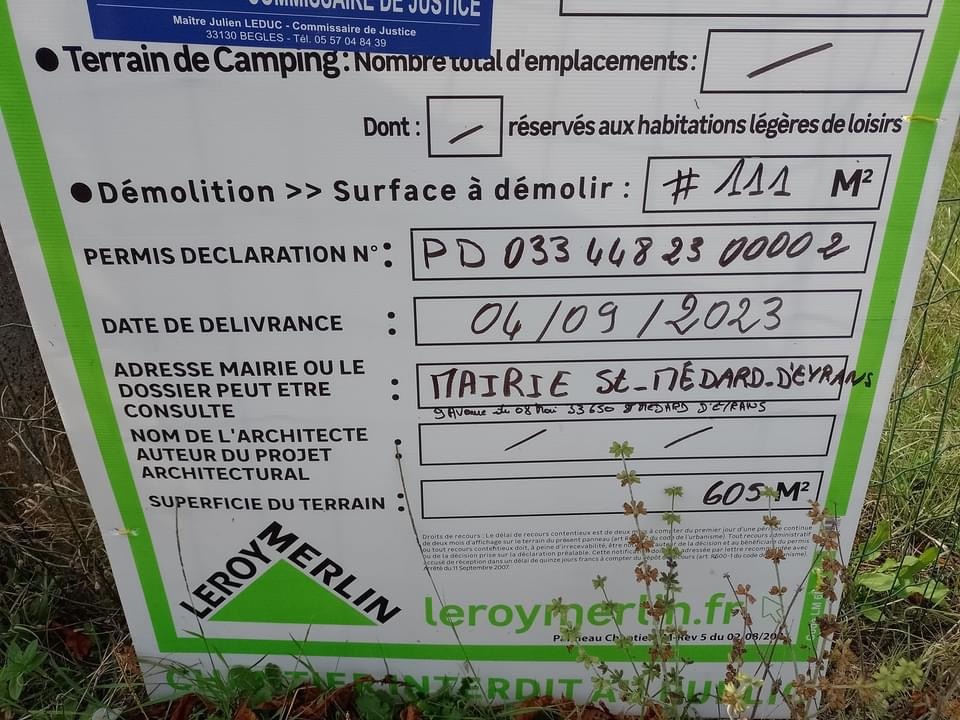 COMMISSAIRE DE JUSTICE
Maître Julien LEDUC - Commissaire de Justice
33130 BEGLES - Tél. 05 57 04 84 39
● Terrain de Camping : Nombre total d'emplacements : /
Dont : / réservés aux habitations légères de loisirs
● Démolition >> Surface à démolir : # 111 M²
PERMIS DECLARATION N° : PD 033 448 23 00002
DATE DE DELIVRANCE : 04/09/2023
ADRESSE MAIRIE OU LE
DOSSIER PEUT ETRE
CONSULTE : MAIRIE St-MÉDARD-D'EYRANS
9 Avenue du 08 Mai 33650 St MEDARD D'EYRANS
NOM DE L'ARCHITECTE
AUTEUR DU PROJET
ARCHITECTURAL : / /
SUPERFICIE DU TERRAIN : 605 M²
Droits de recours : Le délai de recours contentieux est de deux mois à compter du premier jour d'une période continue
de deux mois d'affichage sur le terrain du présent panneau (art. R600-2 du code de l'urbanisme). Tout recours administratif
ou tout recours contentieux doit, à peine d'irrecevabilité, être notifié de la décision et au bénéficiaire du permis
ou de la décision prise sur la déclaration préalable. Cette notification adressée par lettre recommandée avec
accusé de réception dans un délai de quinze jours francs à compter du dépôt du recours (art. R600-1 du code de l'urbanisme).
Arrêté du 11 Septembre 2007.
LEROY MERLIN
leroymerlin.fr
Panneau Chantier LM-Rev 5 du 02/08/20
CHANTIER INTERDIT AU PUBLIC